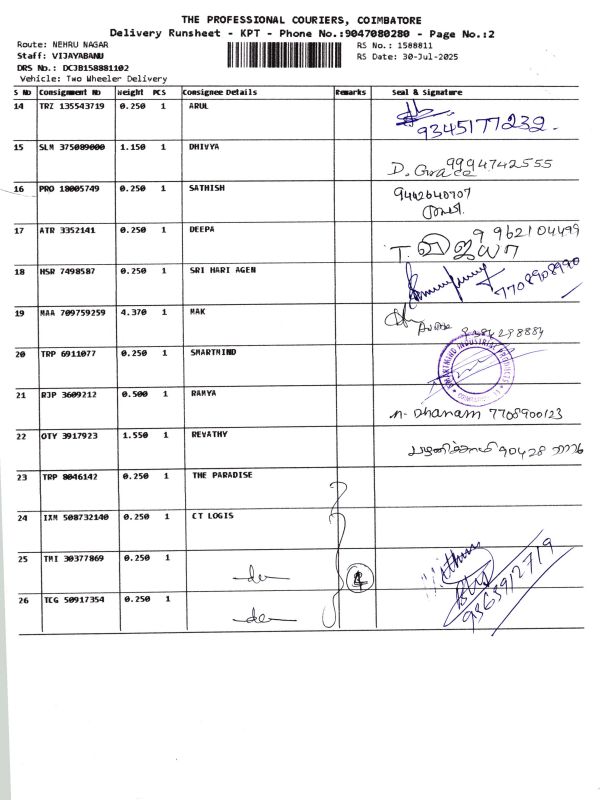 THE PROFESSIONAL COURIERS, COIMBATORE
Delivery Runsheet - KPT - Phone No.:9047080280 - Page No.:2
Route: NEHRU NAGAR RS No.: 1588811
Staff: VIJAYABANU RS Date: 30-Jul-2025
DRS No.: DCJB158881102
Vehicle: Two Wheeler Delivery
S No Consignment No Weight PCS Consignee Details Remarks Seal & Signature
14 TRZ 135543719 0.250 1 ARUL
9345177232
15 SLM 375089000 1.150 1 DHIVYA
9994742555
16 PRO 18005749 0.250 1 SATHISH
9442640707
17 ATR 3352141 0.250 1 DEEPA
9962104499
T. விஜயா
18 HSR 7498587 0.250 1 SRI HARI AGEN
7708908990
19 MAA 709759259 4.370 1 MAK
20 TRP 6911077 0.250 1 SMARTMIND
SMARTMIND INDUSTRIAL PRODUCTS
21 RJP 3609212 0.500 1 RAMYA
n. Dhanam 7708900123
22 OTY 3917923 1.550 1 REVATHY
பழனிச்சாமி 90428
23 TRP 8046142 0.250 1 THE PARADISE
24 IXM 508732140 0.250 1 CT LOGIS
25 TMI 30377869 0.250 1
26 TCG 50917354 0.250 1
9363912719